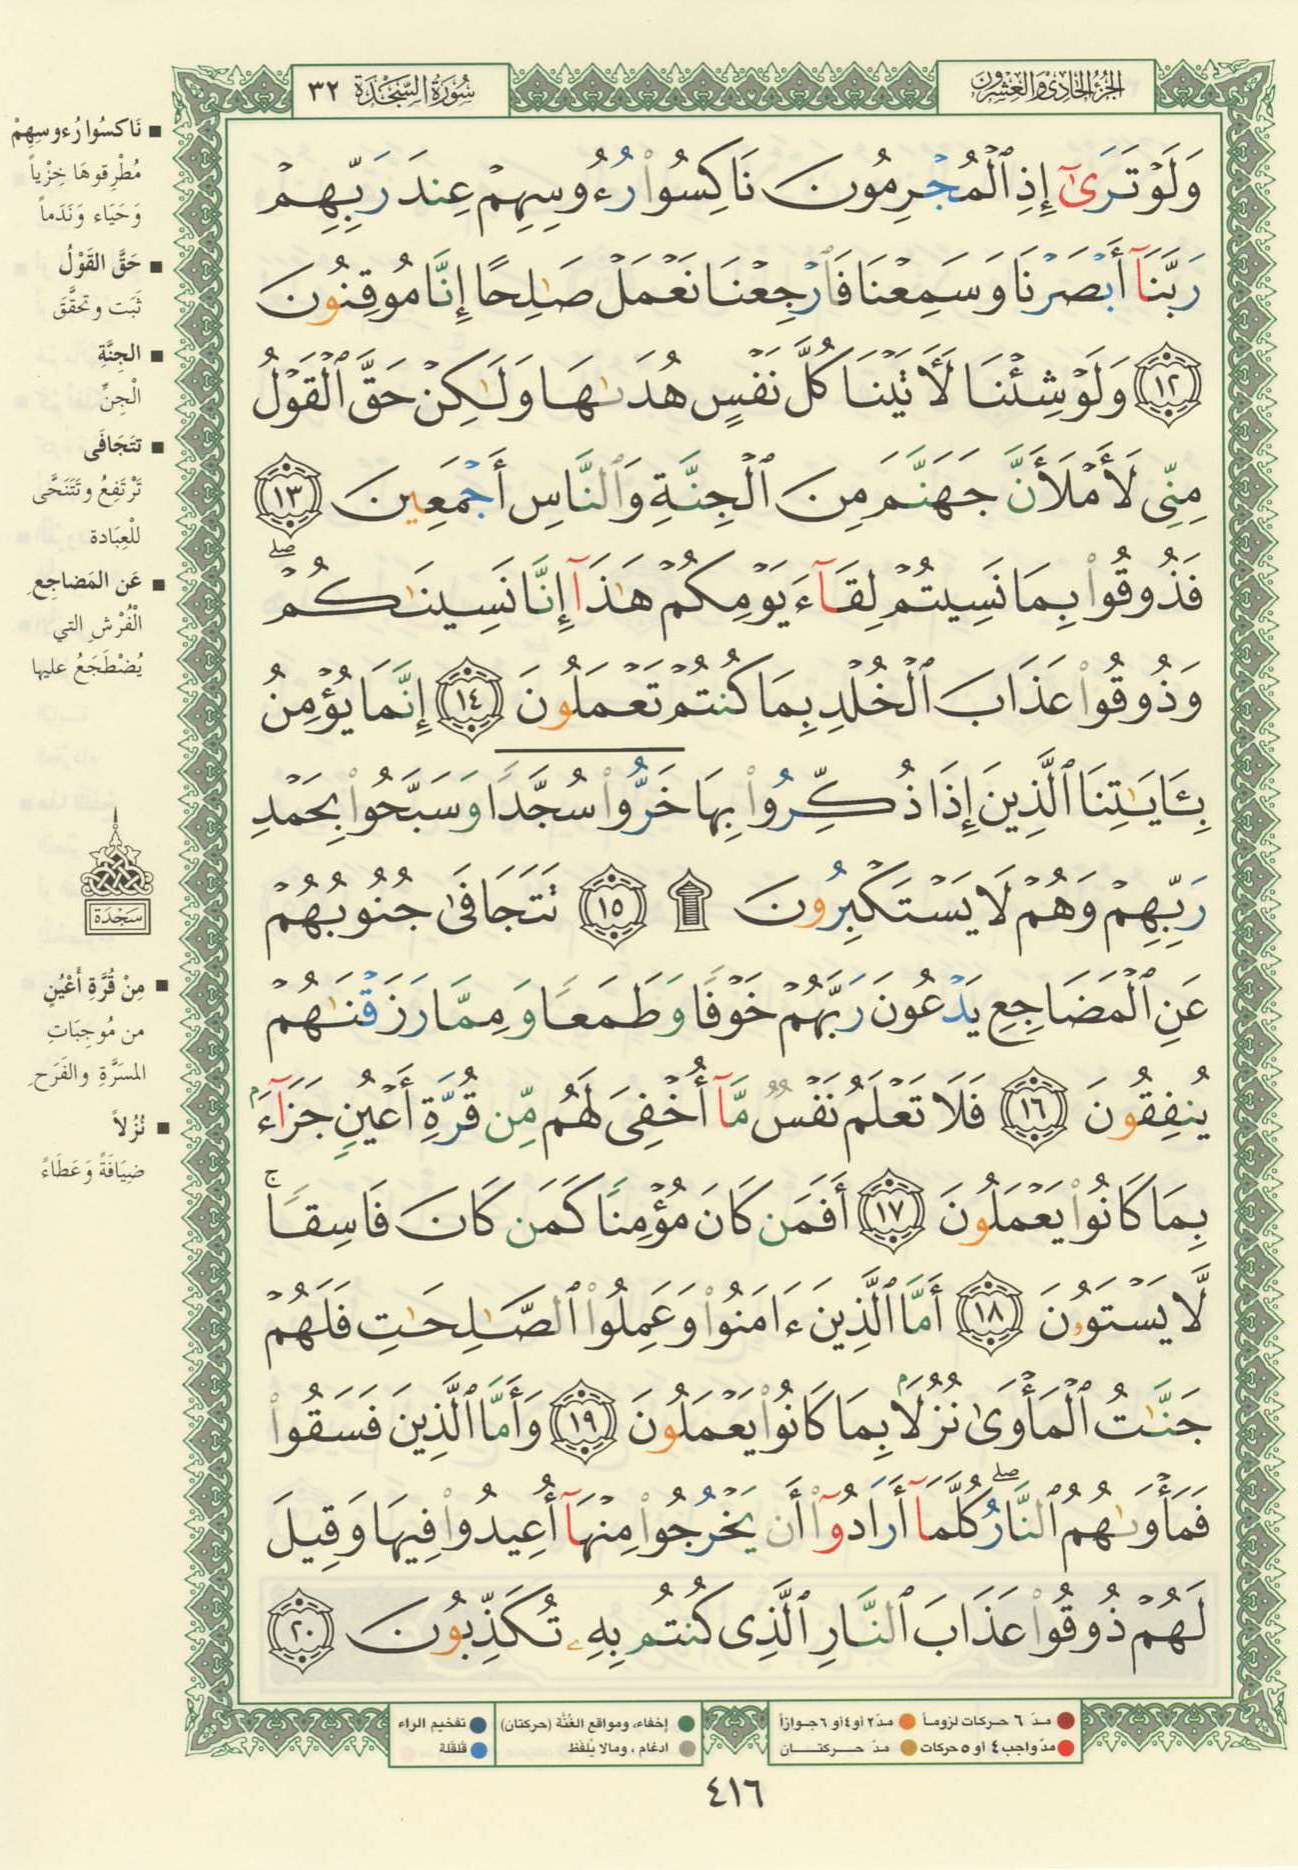 الجزء الحادي والعشرون
سورة السجدة ٣٢
وَلَوْ تَرَىٰٓ إِذِ ٱلْمُجْرِمُونَ نَاكِسُوا۟ رُءُوسِهِمْ عِندَ رَبِّهِمْ
رَبَّنَآ أَبْصَرْنَا وَسَمِعْنَا فَٱرْجِعْنَا نَعْمَلْ صَٰلِحًا إِنَّا مُوقِنُونَ
١٢ وَلَوْ شِئْنَا لَأٓتَيْنَا كُلَّ نَفْسٍ هُدَىٰهَا وَلَٰكِنْ حَقَّ ٱلْقَوْلُ
مِنِّى لَأَمْلَأَنَّ جَهَنَّمَ مِنَ ٱلْجِنَّةِ وَٱلنَّاسِ أَجْمَعِينَ ١٣
فَذُوقُوا۟ بِمَا نَسِيتُمْ لِقَآءَ يَوْمِكُمْ هَٰذَآ إِنَّا نَسِينَٰكُمْ ۖ
وَذُوقُوا۟ عَذَابَ ٱلْخُلْدِ بِمَا كُنتُمْ تَعْمَلُونَ ١٤ إِنَّمَا يُؤْمِنُ
بِـَٔايَٰتِنَا ٱلَّذِينَ إِذَا ذُكِّرُوا۟ بِهَا خَرُّوا۟ سُجَّدًا وَسَبَّحُوا۟ بِحَمْدِ
رَبِّهِمْ وَهُمْ لَا يَسْتَكْبِرُونَ ۩ ١٥ تَتَجَافَىٰ جُنُوبُهُمْ
عَنِ ٱلْمَضَاجِعِ يَدْعُونَ رَبَّهُمْ خَوْفًا وَطَمَعًا وَمِمَّا رَزَقْنَٰهُمْ
يُنفِقُونَ ١٦ فَلَا تَعْلَمُ نَفْسٌ مَّآ أُخْفِىَ لَهُم مِّن قُرَّةِ أَعْيُنٍ جَزَآءًۢ
بِمَا كَانُوا۟ يَعْمَلُونَ ١٧ أَفَمَن كَانَ مُؤْمِنًا كَمَن كَانَ فَاسِقًا ۚ
لَّا يَسْتَوُۥنَ ١٨ أَمَّا ٱلَّذِينَ ءَامَنُوا۟ وَعَمِلُوا۟ ٱلصَّٰلِحَٰتِ فَلَهُمْ
جَنَّٰتُ ٱلْمَأْوَىٰ نُزُلًۢا بِمَا كَانُوا۟ يَعْمَلُونَ ١٩ وَأَمَّا ٱلَّذِينَ فَسَقُوا۟
فَمَأْوَىٰهُمُ ٱلنَّارُ ۖ كُلَّمَآ أَرَادُوٓا۟ أَن يَخْرُجُوا۟ مِنْهَآ أُعِيدُوا۟ فِيهَا وَقِيلَ
لَهُمْ ذُوقُوا۟ عَذَابَ ٱلنَّارِ ٱلَّذِى كُنتُم بِهِۦ تُكَذِّبُونَ ٢٠
■ نَاكسُوا رُءوسِهِمْ
مُطْرِقوهَا خِزْياً
وَحَيَاء وَنَدَماً
■ حَقَّ القَوْلُ
ثَبَت وتَحَقَّقَ
■ الجِنَّةِ
الْجِنِّ
■ تتَجَافَى
تَرْتَفِعُ وتَتَنَحَّى
لِلْعِبَادة
■ عَن المَضاجِعِ
الْفُرُشِ التي
يُضْطَجَعُ عليها
سَجْدَة
■ مِنْ قُرَّةِ أَعْيُنٍ
من مُوجِبَاتِ
المسَرَّةِ والفَرَحِ
■ نُزُلاً
ضِيَافَةً وَعَطَاءً
مدّ ٦ حركات لزوماً
مدّ ٢ أو ٤ أو ٦ جوازاً
إخفاء، ومواقع الغُنَّة (حركتان)
تفخيم الراء
مدّ واجب ٤ أو ٥ حركات
مدّ حركتان
ادغام، وما لا يُلفَظ
قلقلة
٤١٦